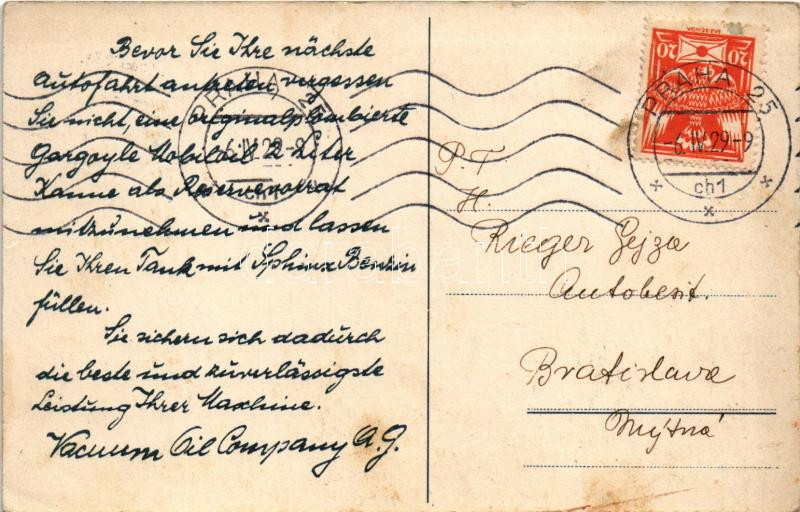 Bevor Sie Ihre nächste
Autofahrt antreten, vergessen
Sie nicht, eine originalplombierte
Gargoyle Mobiloil 2 Liter
Kanne als Reservevorrat
mitzunehmen und lassen
Sie Ihren Tank mit Sphinx Benzin
füllen.
Sie sichern sich dadurch
die beste und zuverlässigste
Leistung Ihrer Maschine.
Vacuum Oil Company A.G.
PRAHA 25
-6.IV.29-9
ch1
20 20
PRAHA 25
-6.IV.29-9
ch1
P.T.
H.
Rieger Gejza
Autobesit.
Bratislava
Mýtná